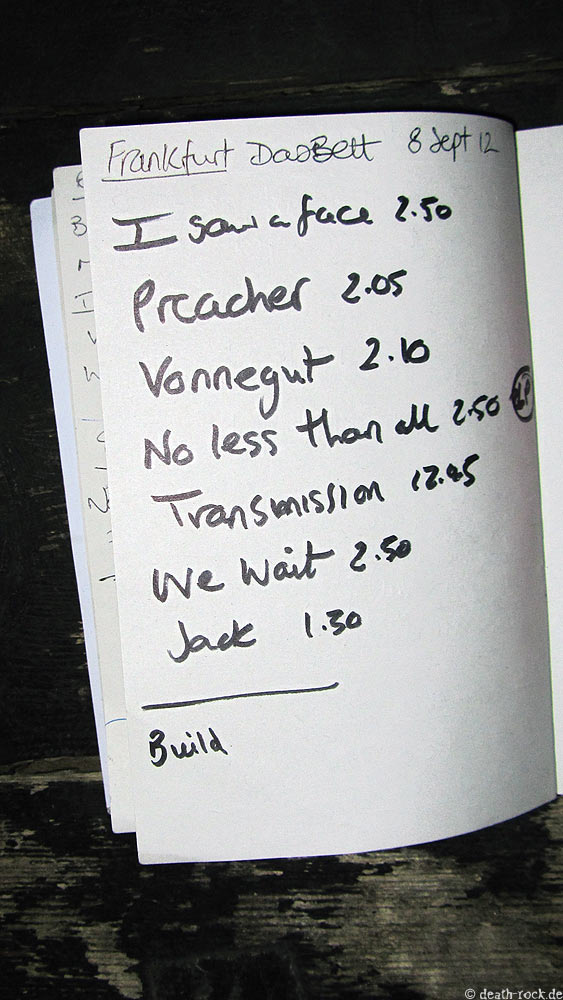 Frankfurt DasBett 8 Sept 12
I saw a face 2.50
Preacher 2.05
Vonnegut 2.10
No less than all 2.50
Transmission 12.45
We Wait 2.50
Jack 1.30
Build
© death-rock.de